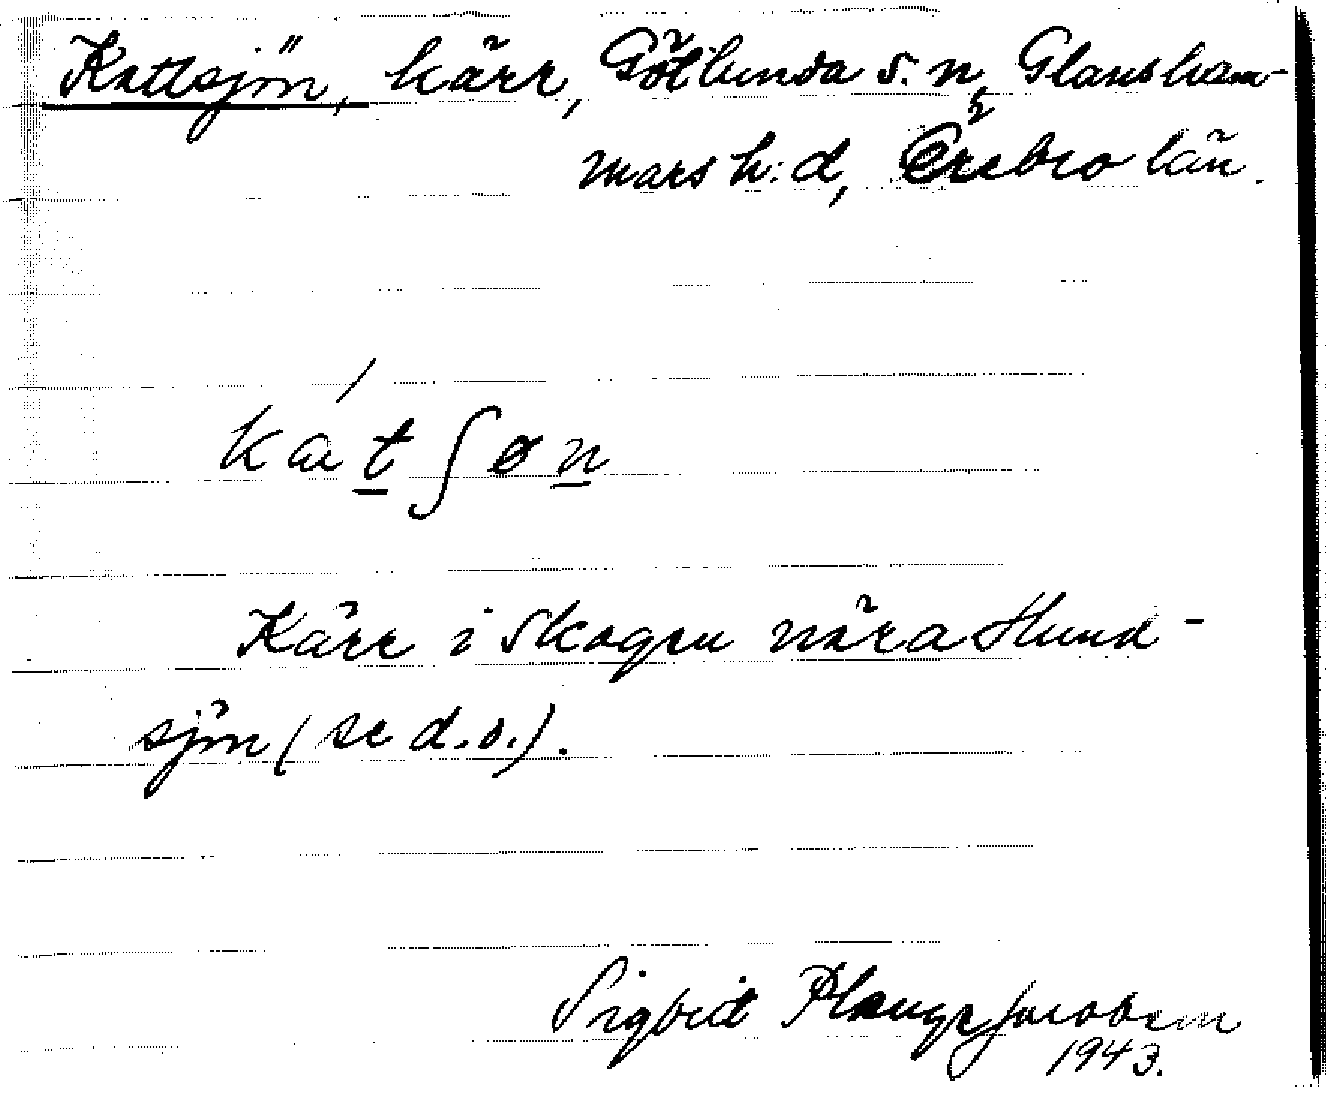 Kattsjön, kärr, Götlunda s:n, Glansham-
mars h:d, Örebro län.
katʃøn
Kärr i skogen nära Hund-
sjön (se d.o.).
Sigbrit Plænge Jacobson
1943.